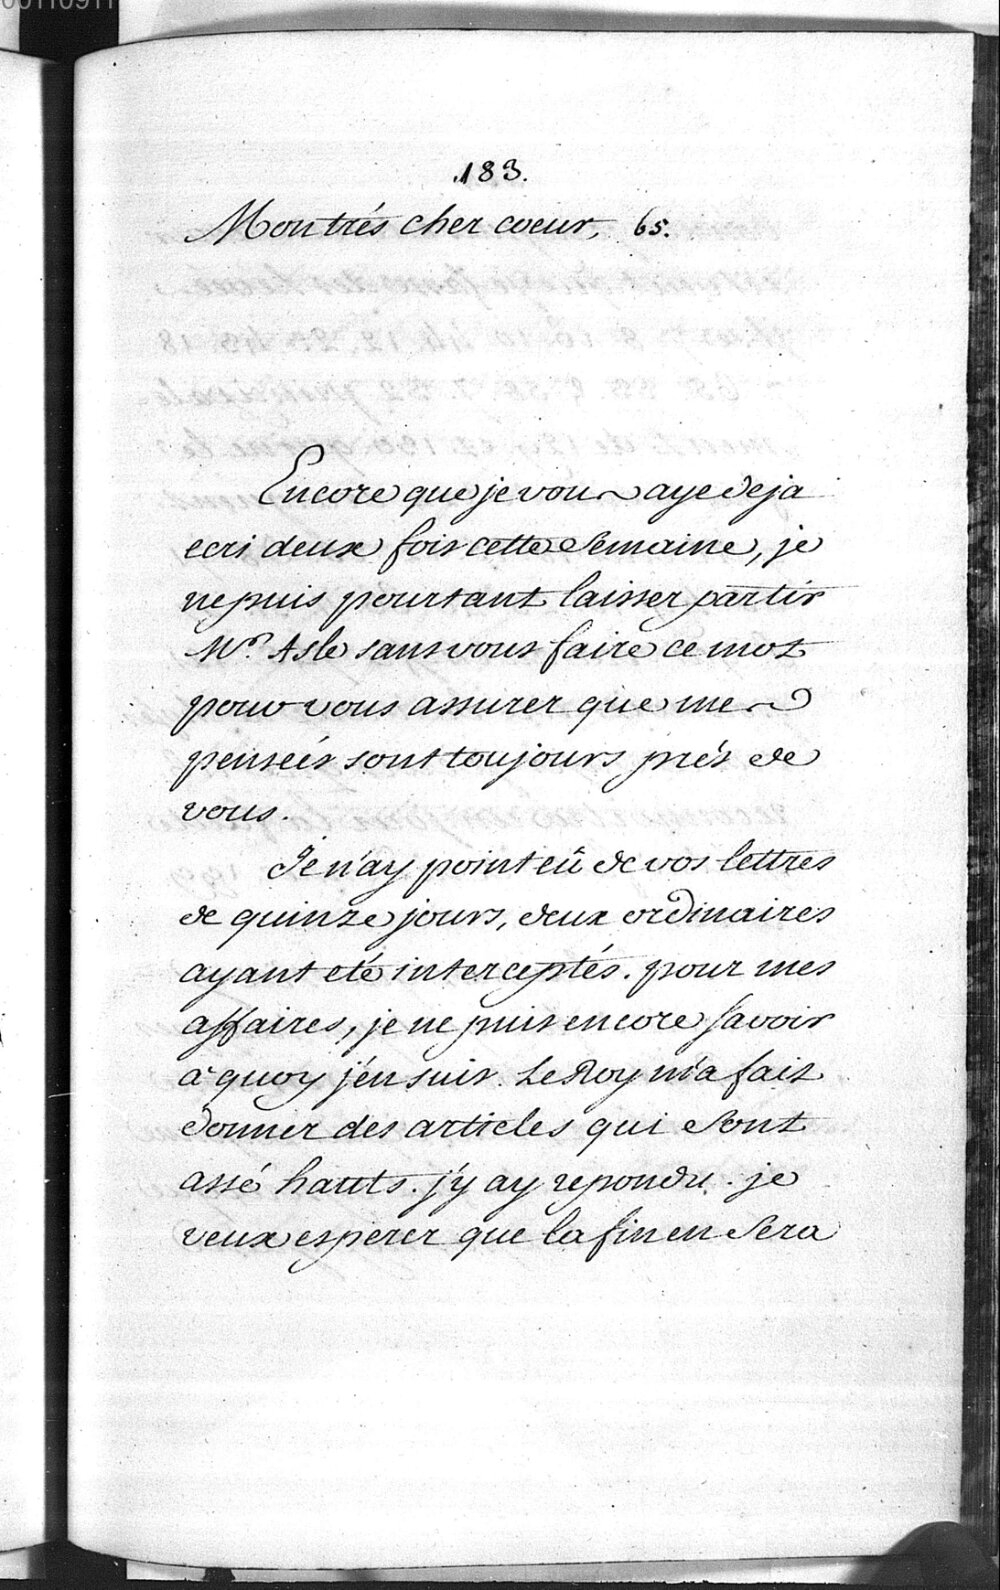 00110911
183.
Mon trés cher coeur, 65.
Encore que je vous aye deja
ecri deux fois cette Semaine, je
ne puis pourtant laisser partir
Mr. Asle sans vous faire ce mot
pour vous assurer que mes
penseés sont toujours prés de
vous.
Je n'ay point eû de vos lettres
de quinze jours, deux ordinaires
ayant eté interceptés. pour mes
affaires, je ne puis encore savoir
à quoy j'en suis. Le Roy m'a fait
donner des articles qui sont
assé hauts. j'y ay repondu. je
veux esperer que la fin en Sera